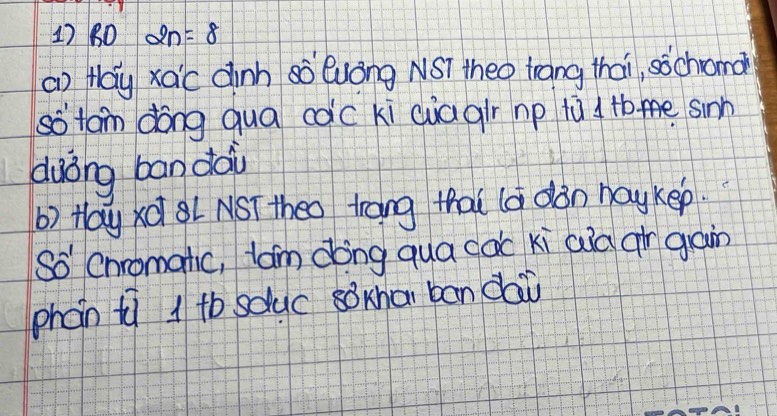 1) BD 2n = 8
a) Hãy xác định số lượng NST theo trạng thái, số chromati
số tâm động qua các kì của qtr np từ 1 tb mẹ sinh
dưỡng ban đầu
b) Hãy xđ SL NST theo trạng thái là đơn hay kép.
Số Chromatic, tâm động qua các kì của qtr giảm
phân từ 1 tb sdục sơ khai ban đầu